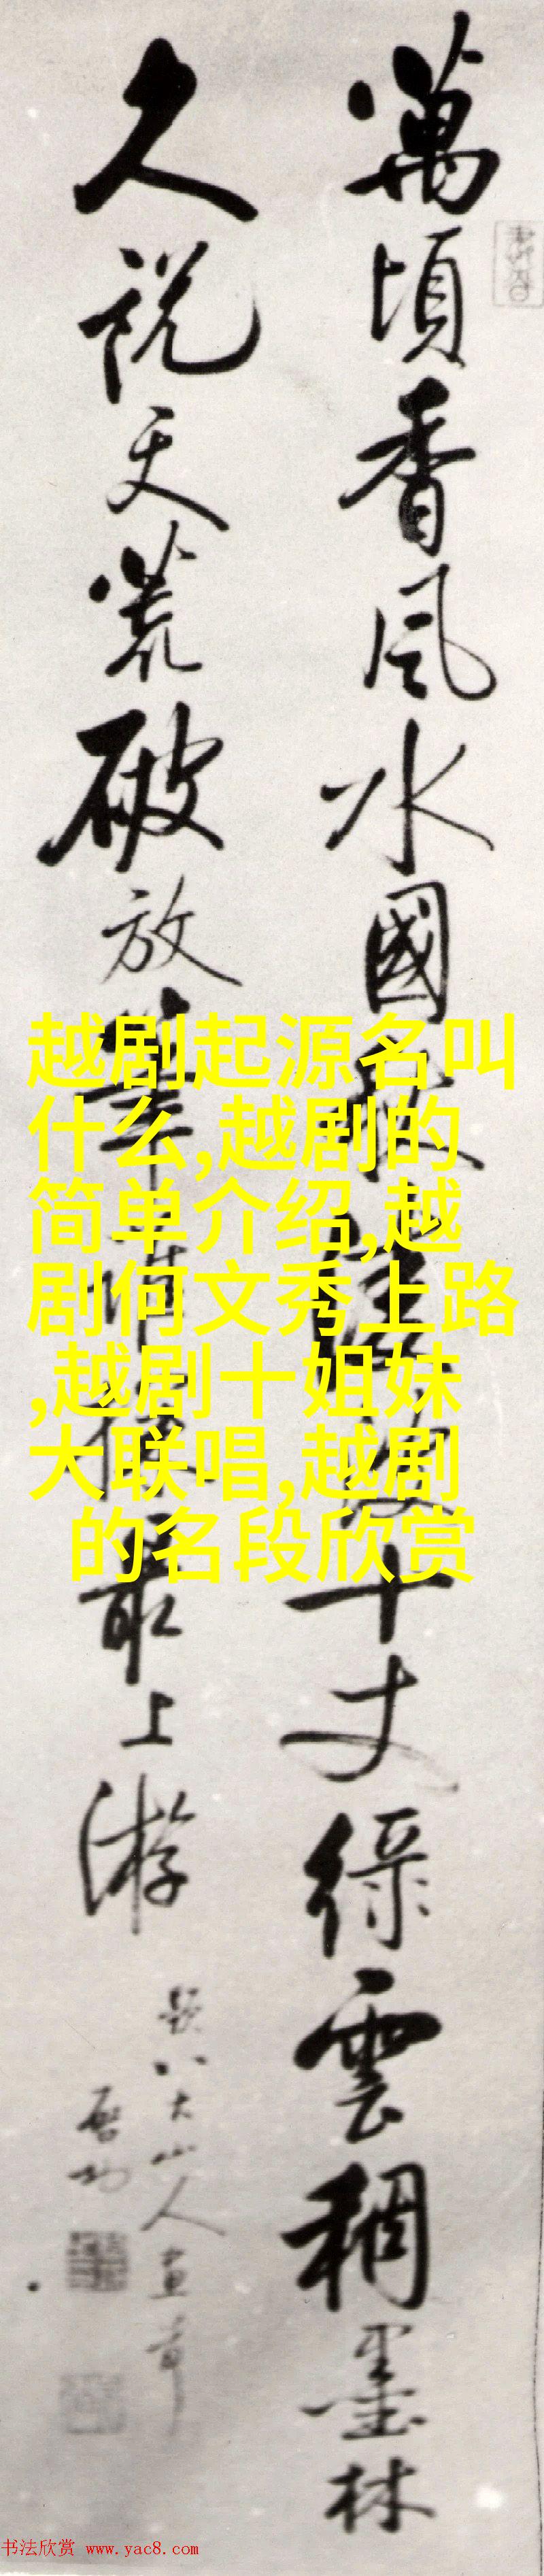 萬頃香風水國秋淤泥十丈綠雲稠墨林
久說天荒破放筆誰攀最上游
題八大山人畫荷
啓功
越剧起源名叫
什么,越剧的
简单介绍,越
剧何文秀上路
,越剧十姐妹
大联唱,越剧
的名段欣赏
书法欣赏 www.yac8.com